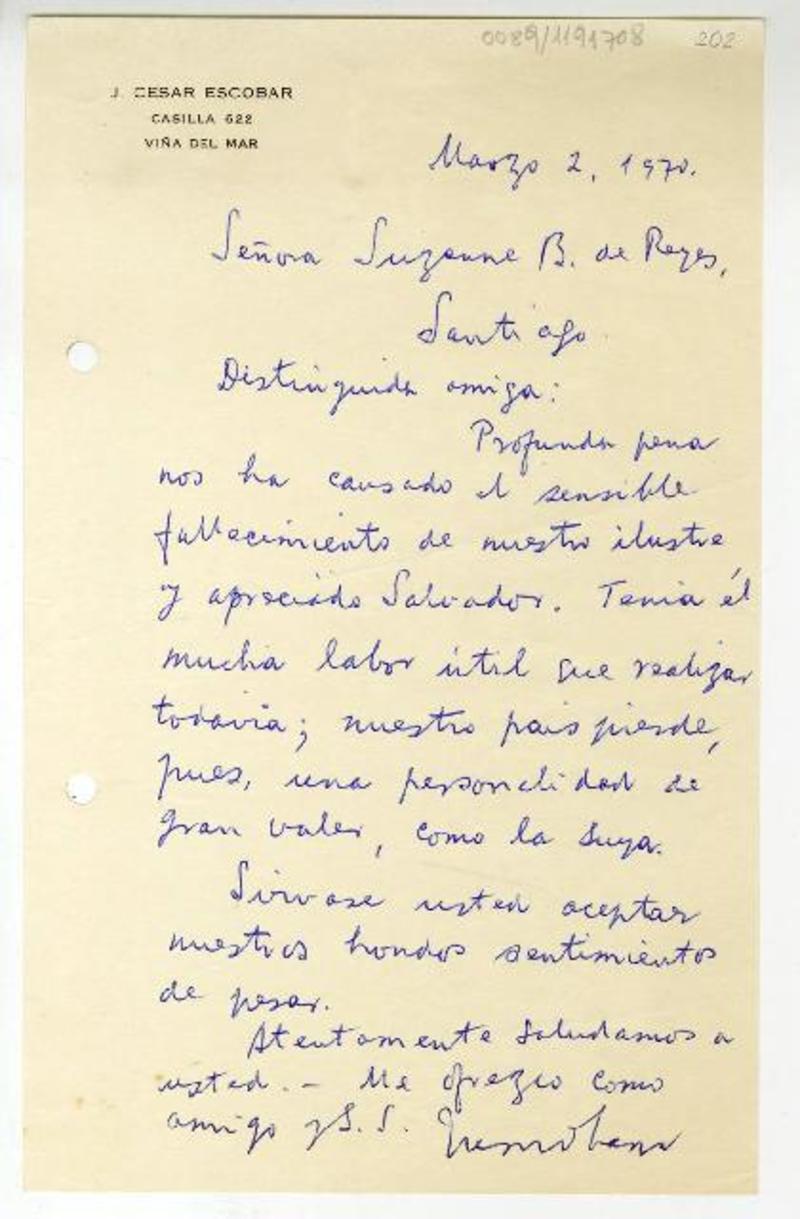 0089/1191708 202
J. CESAR ESCOBAR
CASILLA 622
VIÑA DEL MAR
Marzo 2, 1970.
Señora Suzanne B. de Reyes,
Santiago.
Distinguida amiga:
Profunda pena
nos ha causado el sensible
fallecimiento de nuestro ilustre
y apreciado Salvador. Tenia él
mucha labor útil que realizar
todavia; nuestro pais pierde,
pues, una personalidad de
gran valer, como la suya.
Sirvase usted aceptar
nuestros hondos sentimientos
de pesar.
Atentamente saludamos a
usted. — Me ofrezco como
amigo y S. S.